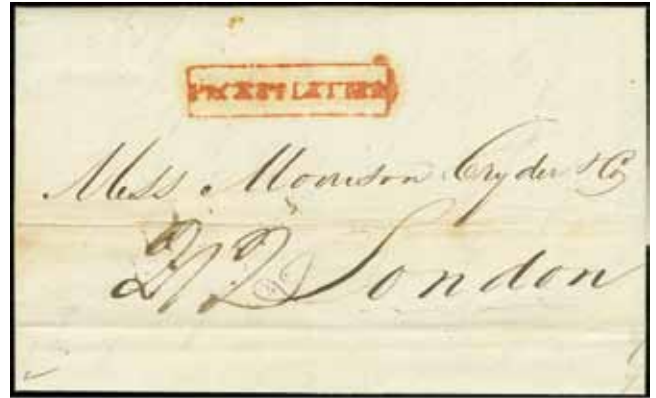 PACKET LETTER
Mess Morrison Cryder & Co
2/2 London